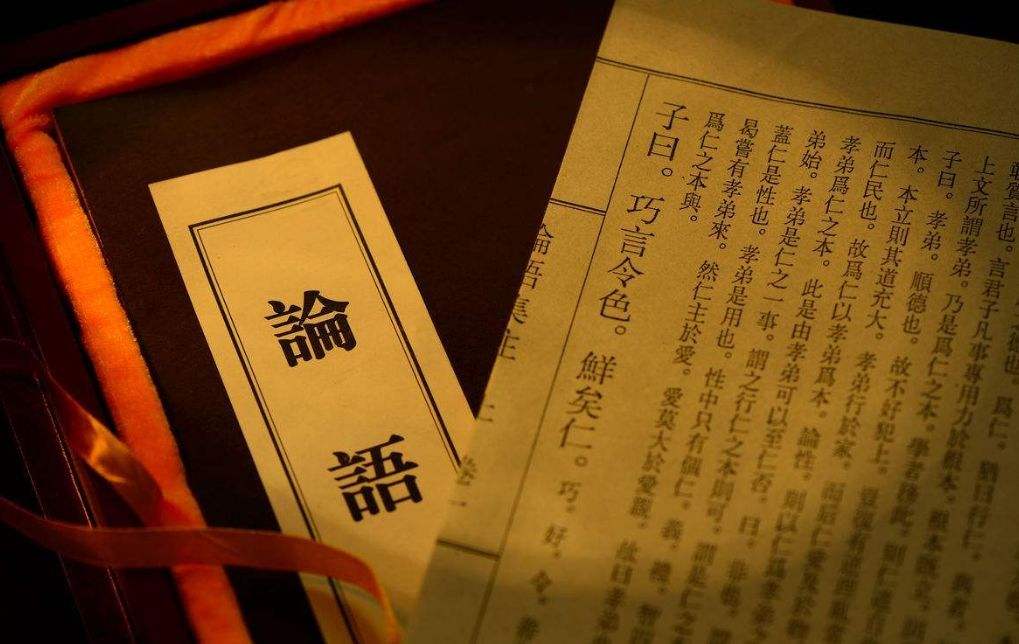 爲仁。猶曰行仁。與者
質言也。言君子凡事專用力於根本。根本既立。則
上文所謂孝弟。乃是爲仁之本。學者務此。則仁道自
子曰。孝弟。順德也。故不好犯上。豈復有逆理亂常
本。本立則其道充大。孝弟行於家。而后仁愛及於物
而仁民也。故爲仁以孝弟爲本。論性。則以仁爲孝弟之
孝弟爲仁之本。此是由孝弟可以至仁否。曰。非也。謂
弟始。孝弟是仁之一事。謂之行仁之本則可。謂是仁之
蓋仁是性也。孝弟是用也。性中只有個仁。義。禮。智
曷嘗有孝弟來。然仁主於愛。愛莫大於愛親。故曰孝弟
爲仁之本與。
子曰。巧言令色。鮮矣仁。巧。好。令。善
論語集注 上 卷一
論語